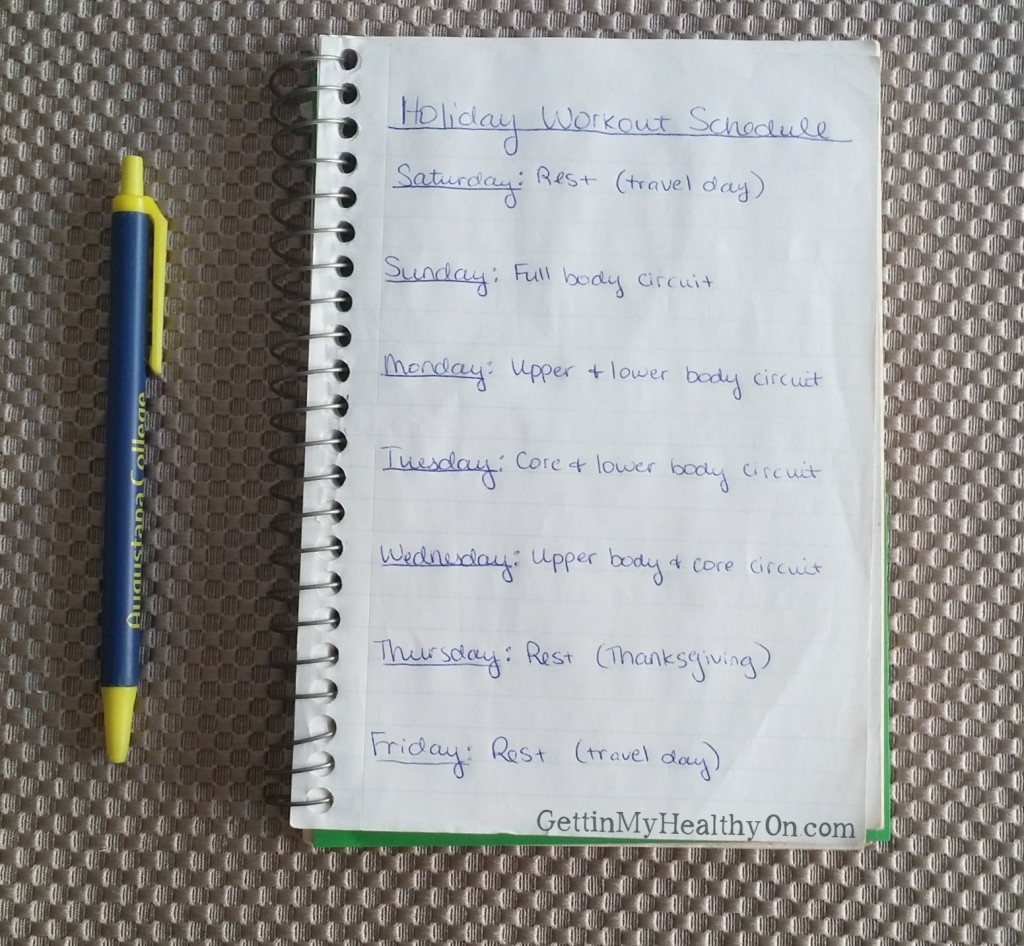 Holiday Workout Schedule
Saturday: Rest (travel day)
Sunday: Full body circuit
Monday: Upper + lower body circuit
Tuesday: Core + lower body circuit
Wednesday: Upper body + core circuit
Thursday: Rest (Thanksgiving)
Friday: Rest (travel day)
GettinMyHealthyOn.com
Augustana College